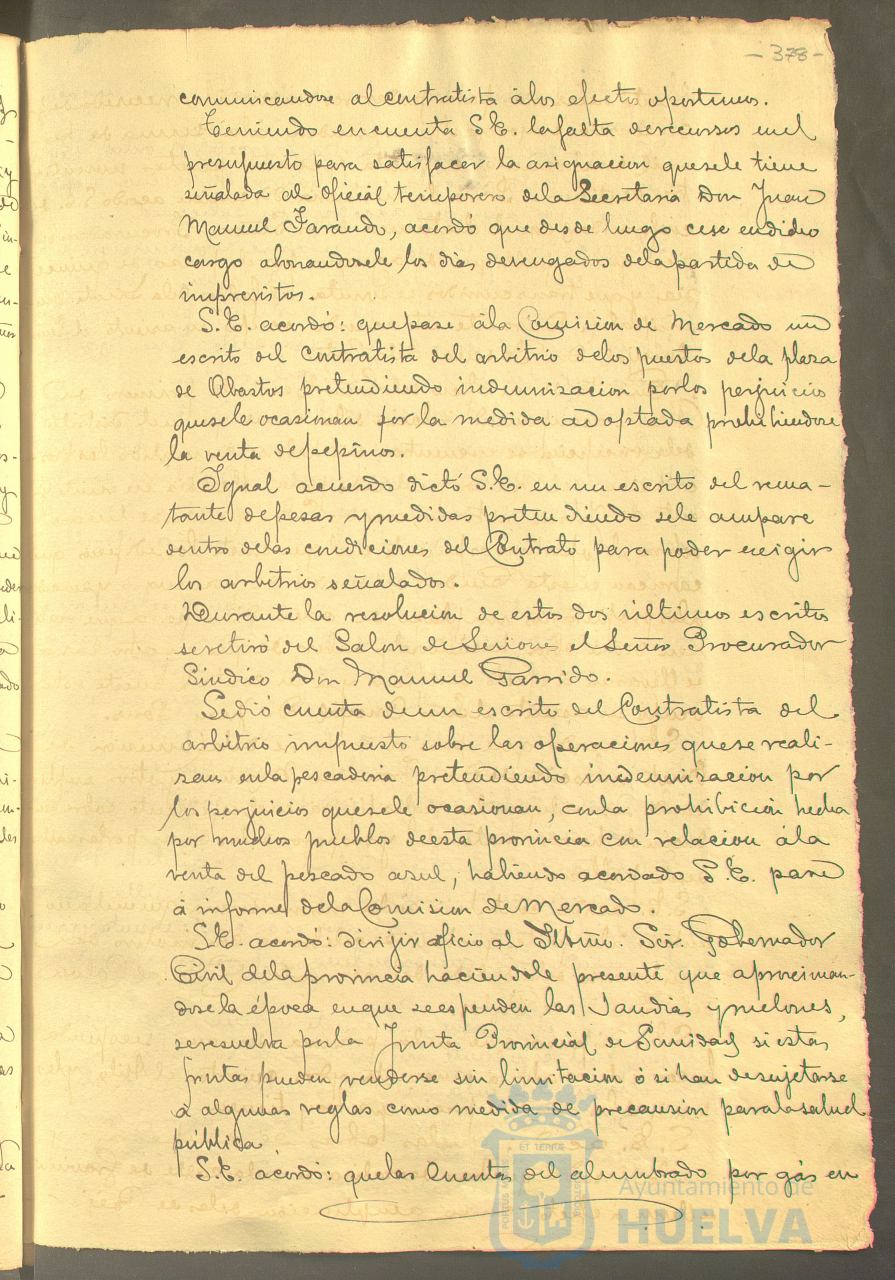 - 378 -
comunicandose al contratista á los efectos oportunos.
Teniendo en cuenta S.E. la falta de recursos en el
presupuesto para satisfacer la asignacion que se le tiene
señalada al oficial temporero de la Secretaria Don Juan
Manuel Farando, acordó que desde luego cese en dicho
cargo abonandosele los dias devengados de la partida de
imprevistos.
S.E. acordó: que pase á la Comision de Mercado un
escrito del contratista del arbitrio de los puestos de la plaza
de Abastos pretendiendo indemnizacion por los perjuicios
que se le ocasionan por la medida adoptada prohibiendose
la venta de pepinos.
Igual acuerdo dictó S.E. en un escrito del rema-
tante de pesas y medidas pretendiendo se le ampare
dentro de las condiciones del Contrato para poder exigir
los arbitrios señalados.
Durante la resolucion de estos dos ultimos escritos
se retiró del Salon de Sesiones el Señor Procurador
Sindico Don Manuel Garrido.
Se dió cuenta de un escrito del Contratista del
arbitrio impuesto sobre las operaciones que se reali-
zan en la pescaderia pretendiendo indemnizacion por
los perjuicios que se le ocasionan, con la prohibición hecha
por muchos pueblos de esta provincia con relacion á la
venta del pescado azul, habiendo acordado S.E. pase
á informe de la Comision de Mercado.
S.E. acordó: dirijir oficio al Iltmo. Sor. Gobernador
Civil de la provincia haciendole presente que aproximan-
dose la época en que se espenden las Sandias y melones,
se resuelva por la Junta Provincial de Sanidad si estas
frutas pueden venderse sin limitacion ó si han de sujetarse
a algunas reglas como medida de precausion para la salud
pública
S.E. acordó: que las Cuentas del alumbrado por gás en
ET TERRAE
Ayuntamiento de
HUELVA